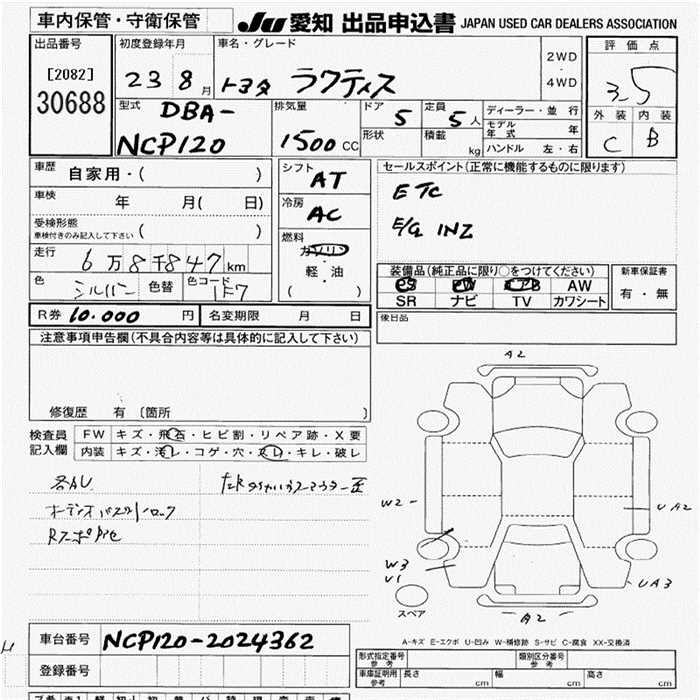 車内保管・守衛保管
JU 愛知 出品申込書 JAPAN USED CAR DEALERS ASSOCIATION
出品番号
[2082]
30688
初度登録年月
23 8月
車名・グレード
トヨタ ラクティス
2WD
・
4WD
評価点
3.5
外装 内装
C B
型式
DBA-
NCP120
排気量
1500 CC
ドア 5
形状
定員 5人
積載 kg
ディーラー・並行
モデル年式 年
ハンドル 左・右
車歴 自家用・( )
車検 年 月( 日)
受検形態
車検付きのみ記入して下さい ( )
走行 6万8千847km
色 シルバー 色替 色コード 1F7
シフト
AT
冷房
AC
燃料
ガソリン
・
軽・油
( )
セールスポイント(正常に機能するものに限ります)
ETC
E/G 1NZ
装備品(純正品に限り○をつけてください)
PS PW エアB AW
SR ナビ TV カワシート
新車保証書
有・無
後日品
R券 10.000 円 名変期限 月 日
注意事項申告欄(不具合内容等は具体的に記入して下さい)
修復歴 有〔箇所 〕
検査員
記入欄
FW キズ・飛石・ヒビ割・リペア跡・X要
内装 キズ・汚レ・コゲ・穴・スレ・キレ・破レ
各AU
A2
W2
UA2
W3
U1
UA3
A2
スペア
A-キズ E-エクボ U-凹み W-補修跡 S-サビ C-腐食 XX-交換済
車台番号 NCP120-2024362
登録番号
形式指定番号
参考
類別区分番号
参考
車庫証明用
参考
長さ cm 幅 cm 高さ cm